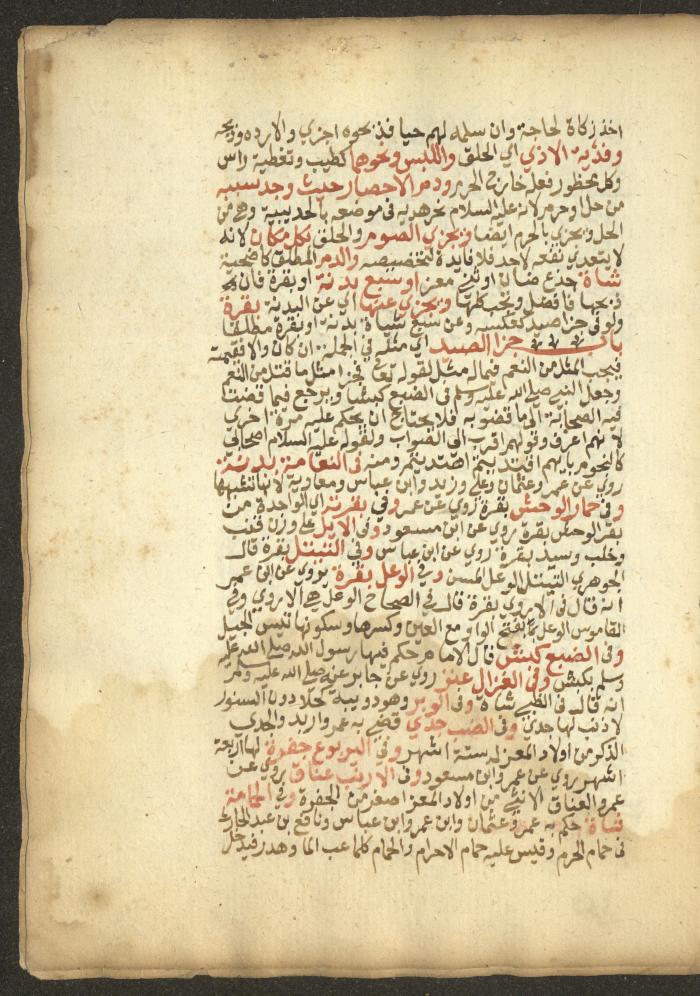 اخذ زكاة لحاجة وان سلمه لهم حيا فذبحوه اجزي والا رده وذبحه
وفدية الاذي اي الحلق واللبس ونحوهما كطيب وتغطية راس
وكل محظور فعله خارج الحرم ودم الاحصار حيث وجد سببه
من حل او حرم لانه عليه السلام نحر هديه في موضعه بالحديبية وهي من
الحل ويجزي بالحرم ايضا ويجزي الصوم والحلق بكل مكان لانه
لا يتعدي نفعه لاحد فلا فايدة لتخصيصه والدم المطلق كاضحية
شاة جذع ضان او ثني معز او سبع بدنة او بقرة فان
ذبحها فافضل وتجب كلها ويجزي عنها اي عن البدنة بقرة
ولو في جزا صيد كعكسه وعن سبع شياة بدنة او بقرة مطلقا
باب جزا الصيد اي مثله في الجملة ان كان والا فقيمته
فيجب المثل من النعم فيما له مثل لقوله تعا فجزا مثل ما قتل من النعم
وجعل النبي صلي الله عليه وسلم في الضبع كبشا ويرجع فيما قضت
فيه الصحابة الي ما قضو به فلا يحتاج ان يحكم عليه مرة اخري
لانهم اعرف وقولهم اقرب الي الصواب ولقوله عليه السلام اصحابي
كالنجوم بايهم اقتديتم اهتديتم ومنه في النعامة بدنة
روي عن عمر وعثمان وعلي وزيد وابن عباس ومعاوية لانها تشبهها
وفي حمار الوحش بقرة روي عن عمر وفي بقرته اي الواحدة من
بقر الوحش بقرة روي عن ابن مسعود وفي الايل علي وزن قنب
وخلب وسيد بقرة روي عن ابن عباس وفي الثيتل بقرة قال
الجوهري الثيتل الوعل المسن وفي الوعل بقرة يروي عن ابن عمر
انه قال في الاروي بقرة قال في الصحاح الوعل هي الاروي وفي
القاموس الوعل بفتح الواو مع العين وكسرها وسكونها تيس الجبل
وفي الضبع كبش قال الامام حكم فيها رسول الله صلي الله عليه
وسلم بكبش وفي الغزال عنز روي عن جابر عنه صلي الله عليه وسلم
انه قال في الظبي شاة وفي الوبر وهو دويبة كحلا دون السنور
لا ذنب لها جدي وفي الضب جدي قضي به عمر واربد والجدي
الذكر من اولاد المعز له ستة اشهر وفي اليربوع جفرة لها اربعة
اشهر روي عن عمر وابن مسعود وفي الارنب عناق روي عن
عمر والعناق الانثي من اولاد المعز اصغر من الجفرة وفي الحمامة
شاة حكم به عمر وعثمان وابن عمر وابن عباس ونافع بن عبد الحارث
في حمام الحرم وقيس عليه حمام الاحرام والحمام كلما عب الما وهدر فيدخل